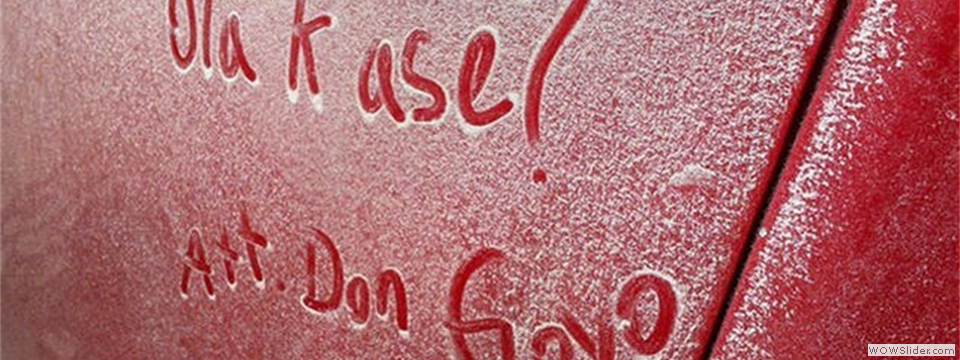 Ola k ase?
Att. Don Goyo
WOWSlider.com